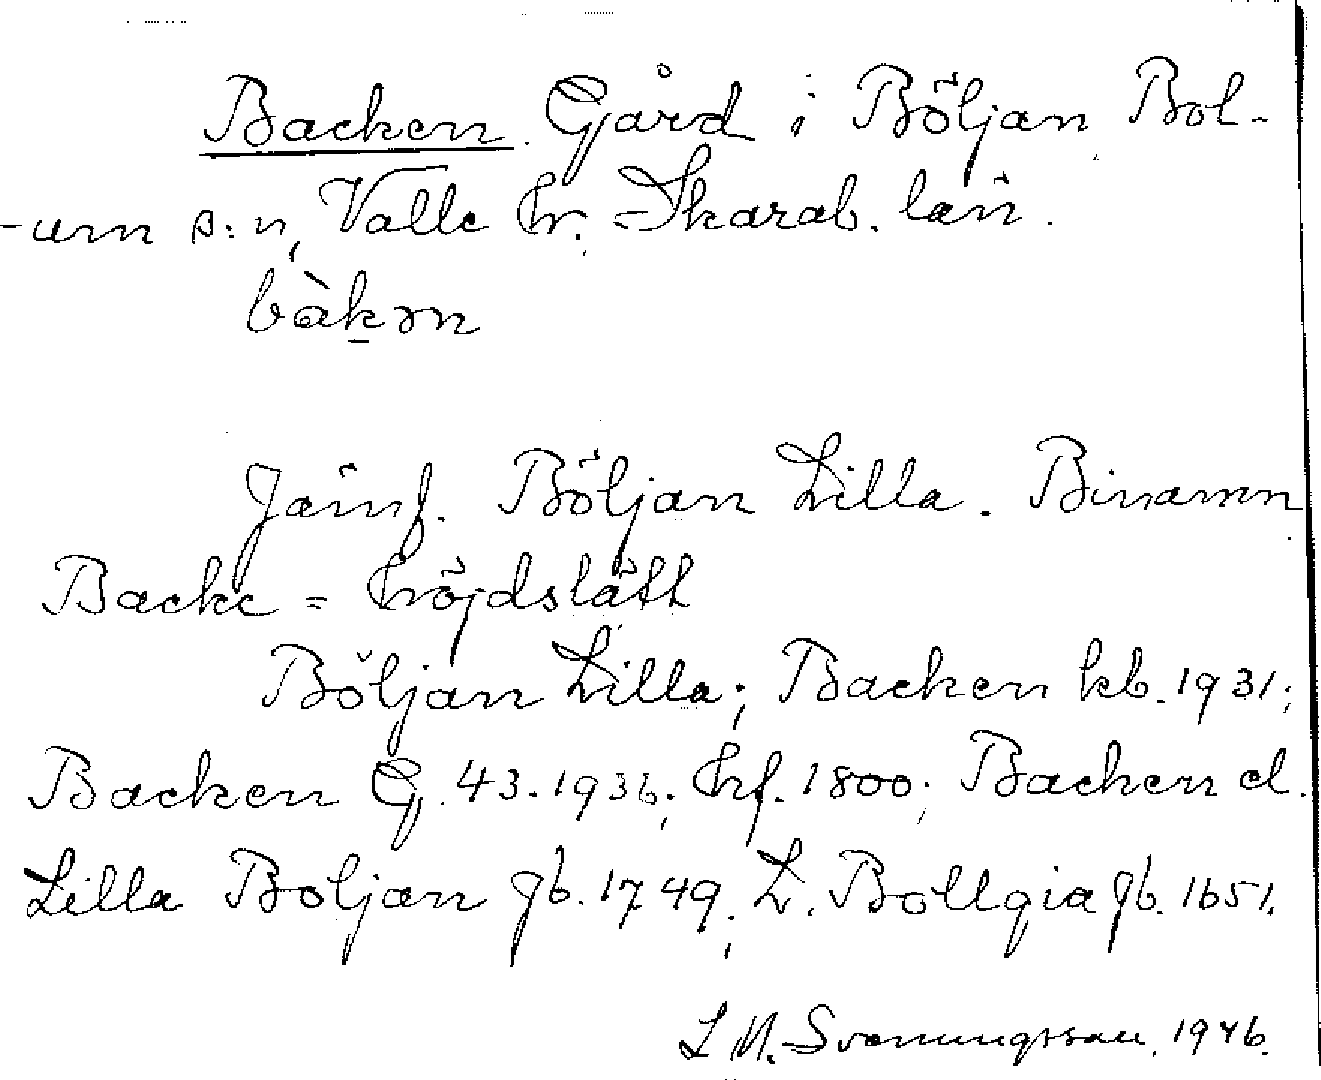 Backen. Gård i Böljan Bol-
-um s:n, Valle hr. Skarab. län.
bàkən
Jämf. Böljan Lilla. Binamn
Backe = höjdslätt
Böljan Lilla; Backen kb. 1931;
Backen G. 43. 1936; hf. 1800; Backen el.
Lilla Böljan gb. 1749; L. Bollgia gb. 1651.
L M. Svenungsson, 1946.